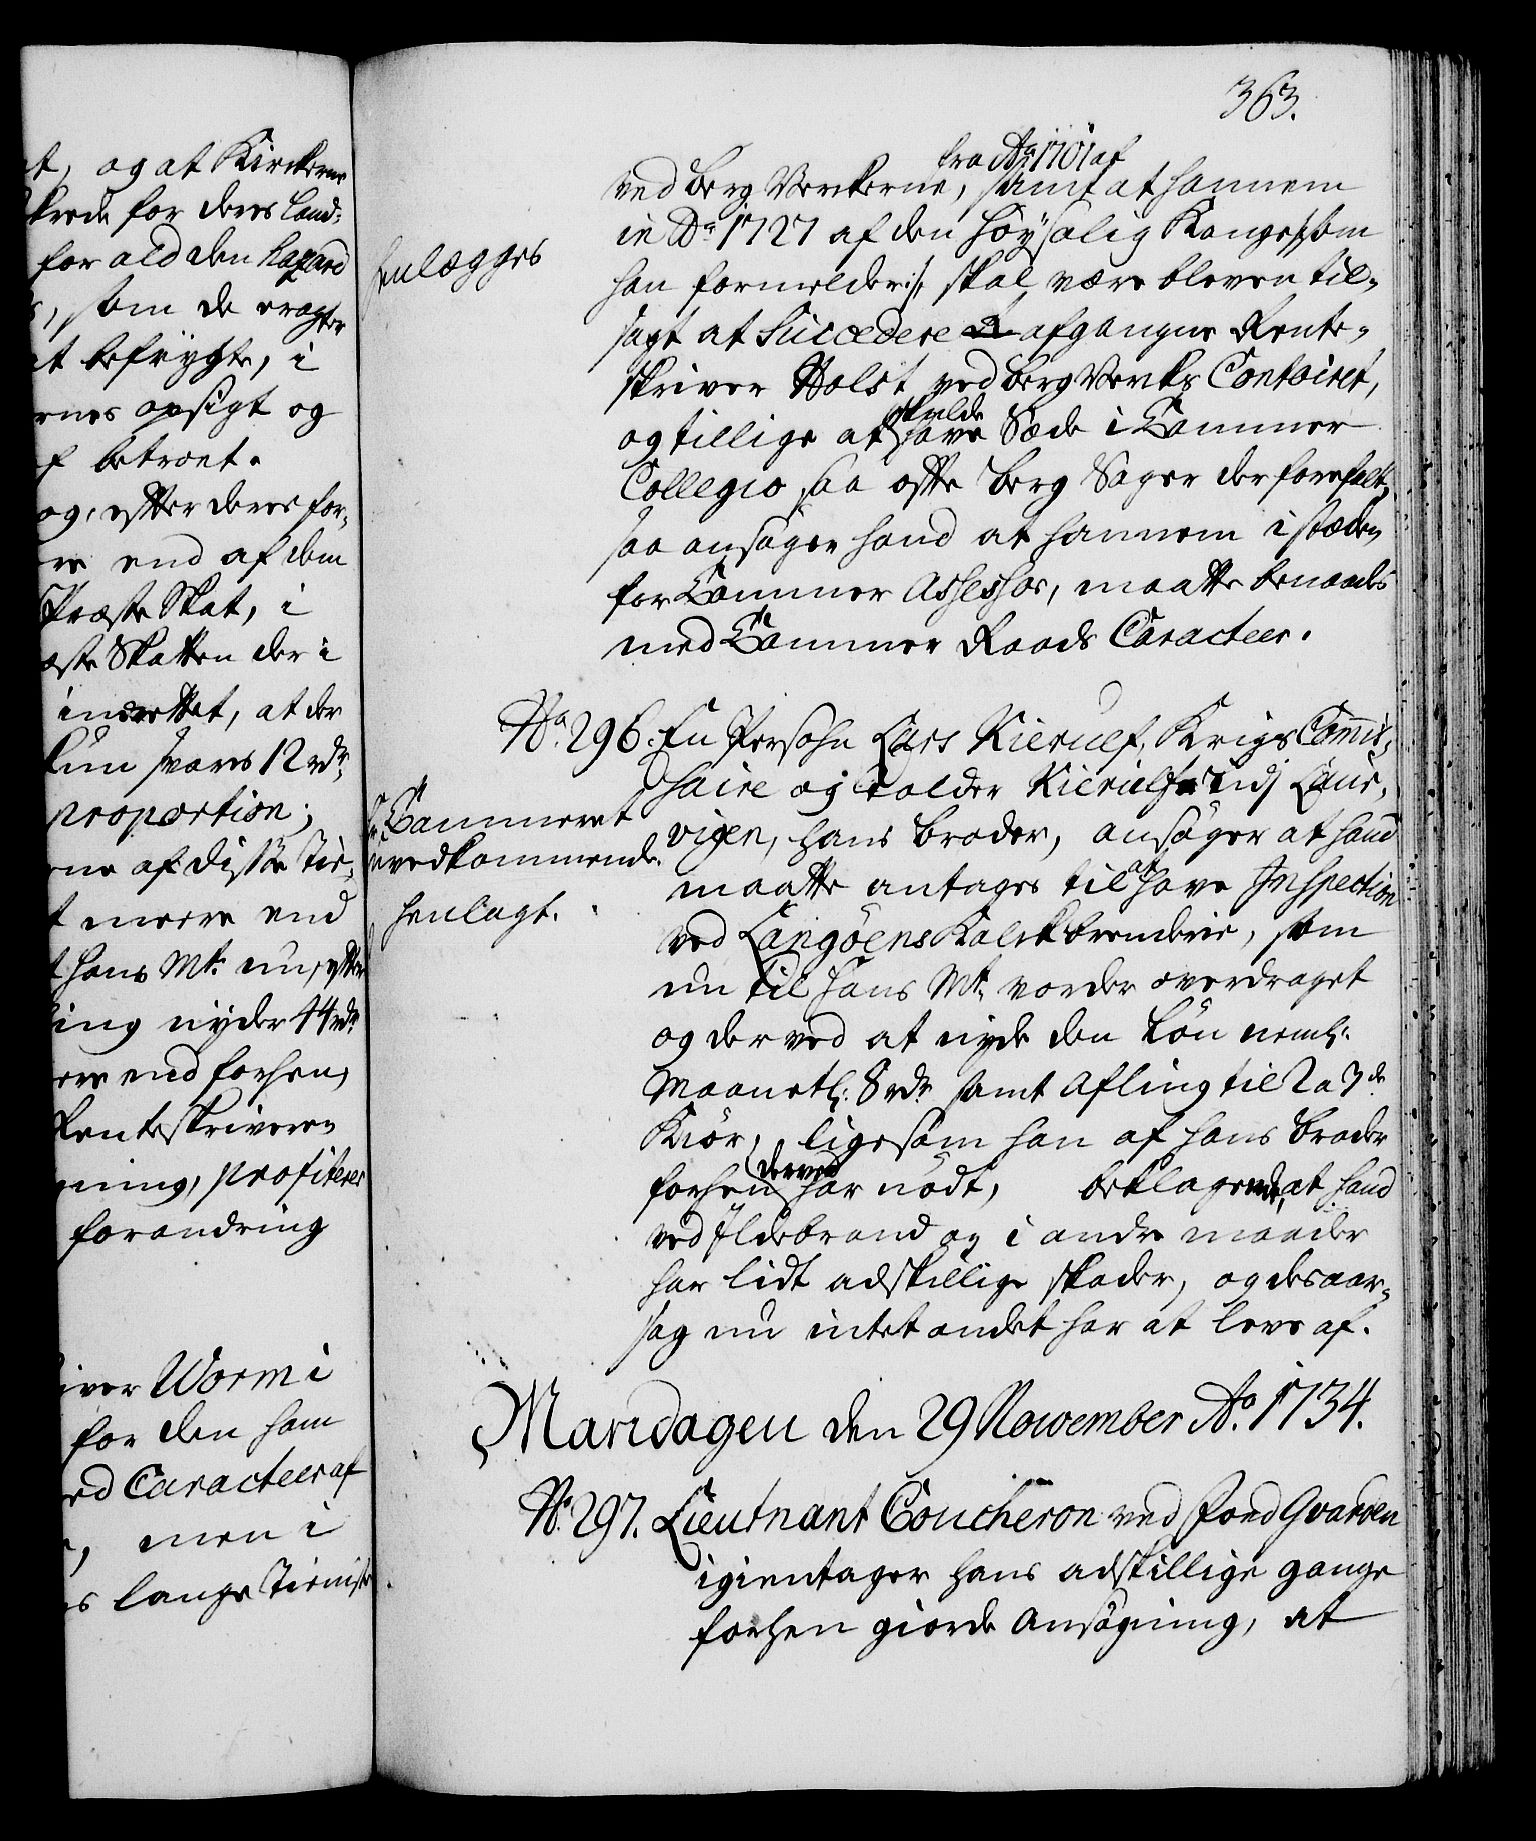 363.
t, og at Kirckerne
for deres Land-
for ald den hazard
som de eragter
at befrygte, i
ernes opsigt og
f betroet.
og, efter deres for-
re end af dem
Præste Skat, i
æste Skatten der i
inrettet, at der
kun svares 12 rdr
proportion;
ne af disse Tie-
t meere end
t hans Mt: nu, efter
ing nyder 44 rdr
ere end forhen,
Rentskriveren
ning, profiterer
forandring
iver Worm i
for den ham
ed Caracteer af
, men i
s lange Tieniste
henlegges
fra Ao 1701 af
ved Berg Verkerne, samt at hannem
in Ao 1727 af den Høysalig Konge /: som
han formelder :/ skal være bleven til-
sagt at Succedere afgangne Rente-
skriver Holst ved Berg Verks Contoiret,
og tillige at skulde have Sæde i Cammer
Collegio saa ofte Berg Sager der forefalt,
saa ansøger hand at hannem i stæden
for Cammer Assessor, maatte benaades
med Cammer Raads Caracteer.
No. 296. En Persohn Lars Kierulf, Krigs Commis-
saire og Tolder Kierulfs udj Laur-
vigen, hans broder, ansøger at hand
maatte antages til at have Inspection
ved Langöens Kalckbrenderie, som
nu til Hans Mt: vorder overdraget
og derved at nyde den Løn neml:
Maanetl: 8 rdr samt Afling til 2 a 3de
Kiør, ligesom han af hans broder
forhen derved har nødt, beklagende, at hand
ved Ildebrand og i andre maader
har lidt adskillige skader, og desaar-
sag nu intet andet har at leve af.
Cammeret
uvedkommende
henlagt.
Mandagen den 29 November Ao. 1734.
No. 297. Lieutnant Coucheron ved Food Gvarden
igientager hans adskillige gange
forhen giorde Ansøgning, at